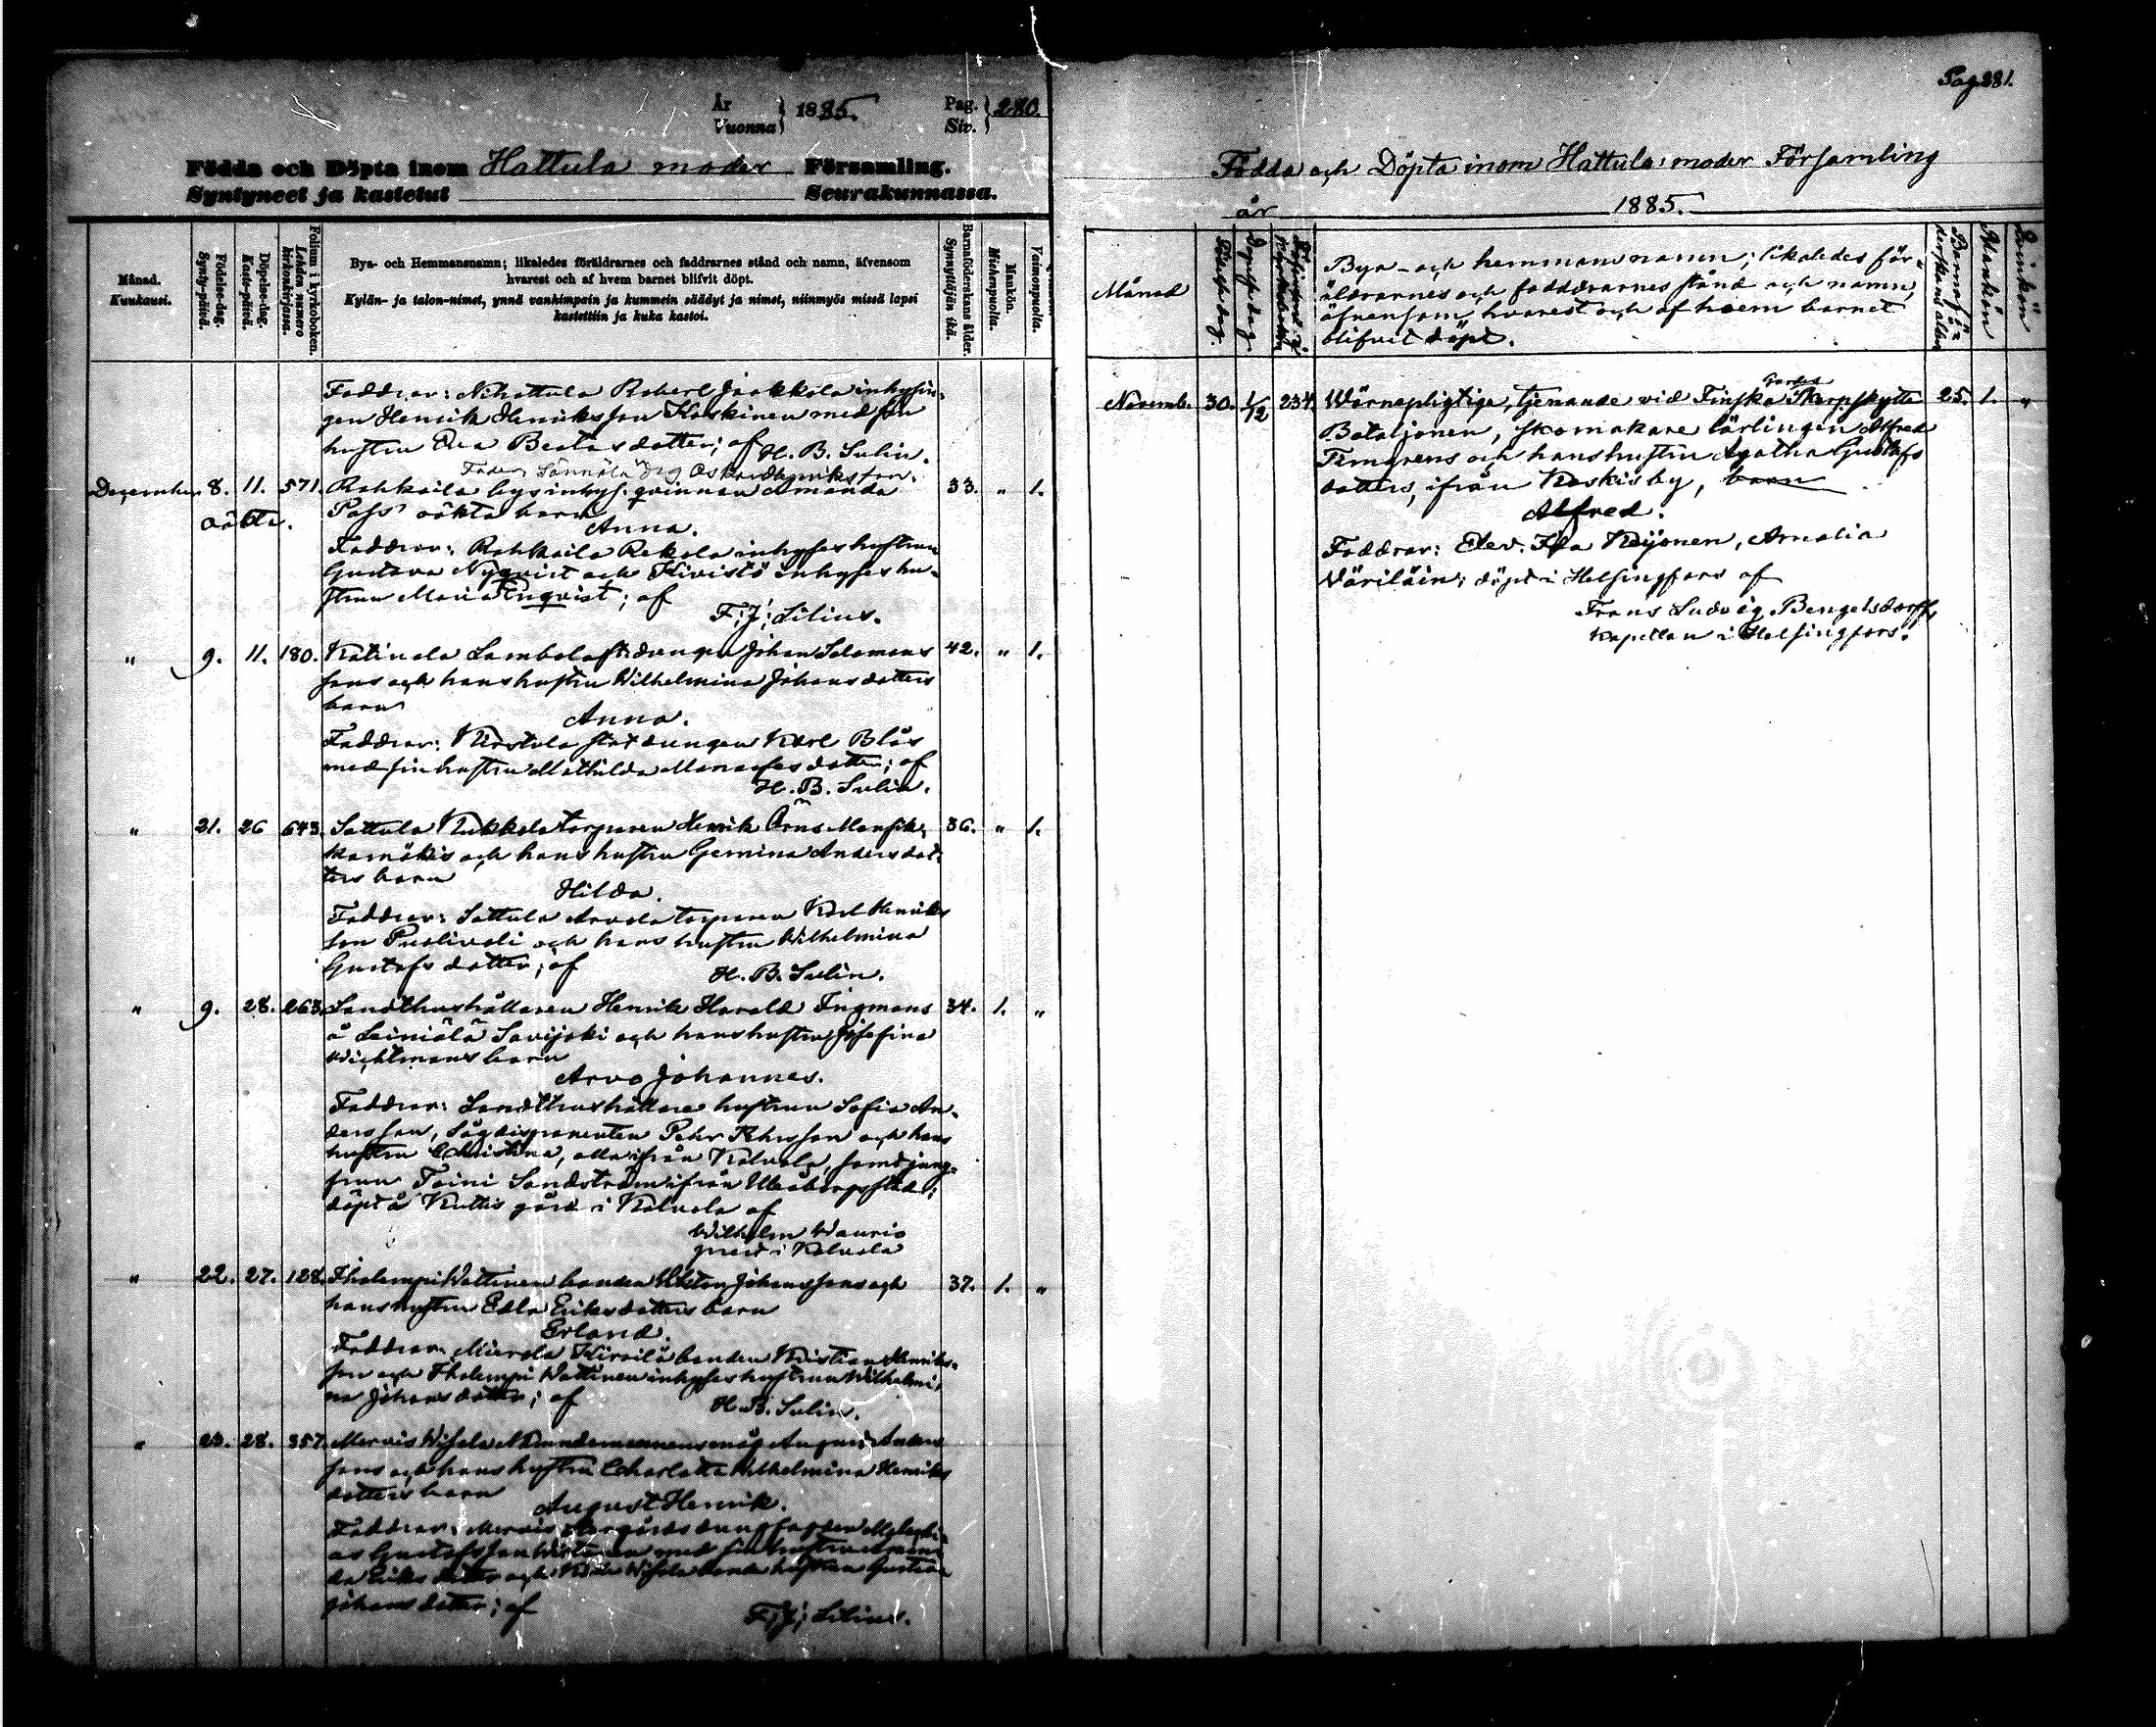 År
Vuonna } 1885.
Pag.
Siv. } 280.
Födda och Döpta inom Hattula moder Församling.
Syntyneet ja kastetut Seurakunnassa.
Månad.
Kuukausi.
Födelse-dag.
Synty-päivä.
Döpelse-dag.
Kaste-päivä.
Folium i kyrkoboken.
Lehden numero kirkonkirjassa.
Bya- och Hemmansnamn; likaledes föräldrarnes och faddrarnes stånd och namn, äfvensom
hvarest och af hvem barnet blifvit döpt.
Kylän- ja talon-nimet, ynnä vanhimpain ja kummein säädyt ja nimet, niinmyös missä lapsi
kastettiin ja kuka kastoi.
Barnaföderskans ålder.
Synnyttäjän ikä.
Mankön.
Miehenpuolta.
Vaimonpuolta.
Faddrar: Nihattula Robert Jaakkola inhysin-
gen Henrik Henriksson Koskinen med sin
hustru Eva Beatasdotter; af H. B. Sulin.
Fader Oskar Henriksson.
December 8. 11. 571. Rahkoila bys inhys. qvinnan Amanda 33. " 1.
oäkta. oäkta barn
Anna.
Faddrar: Rahkoila Rekola inhyses hustrun
Gustava Nyqvist och Kivistö inhyses hu-
strun Maria Enqvist; af
F: J: Lilius.
" 9. 11. 180. Katinala Lambola st. drängen Johan Salomons 42. " 1.
sons och hans hustru Wilhelmina Johansdotters
barn
Anna.
Faddrar: statdrängen Karl Blås
med sin hustru Mathilda Manassesdotter; af
H. B. Sulin.
" 21. 26 643. Sattula Kukkola torparen Henrik Örns Mansik- 36. " 1.
kamäkis och hans hustru Gemina Andersdot-
ters barn
Hilda.
Faddrar: Sattula Arvola torparen Karl Henriks
son Puolivali och hans hustru Wilhelmina
Gustafsdotter; af H. B. Sulin.
" 9. 28. 263. Landthushållaren Henrik Harald Tingmans 34. 1. "
å Leiniälä Savijoki och hans hustru Josefina
Wichtmans barn
Arvo Johannes.
Faddrar: Landthushållare hustrun Sofia An-
dersson, Sågdisponenten Pehr Pehrsson och hans
hustru Christina, alla ifrån Kalvola, samt jung-
frun Toini Sandström ifrån Uleåborgs stad;
döpt å Kuttis gård i Kalvola af
Wilhelm Waurio
prest i Kalvola
" 22. 27. 128. Ihalempi Wattinen bonden Johanssons och 37. 1. "
hans hustru Edla Eriksdotters barn
Erland.
Faddrar: Mierola Kirvilä bonden Kristian Henriks-
son och Ihalempi Wattinen inhyses hustrun Wilhelmi-
na Johansdotter; af H. B. Sulin.
" 23. 28. 357. Mervis August Anders
sons och hans hustru Charlotta Wilhelmina Henriks
dotters barn
August Henrik.
Faddrar: Mervis
Gustafsson med sin hustru
Eriksdotter och hustrun Gustava
Johansdotter; af F: J: Lilius.
Pag 281.
Födda och Döpta inom Hattula moder Församling
år 1885.
Månad
Födelse dag.
Döpelse dag
Bya- och hemmansnamn; likaledes för-
äldrarnes och faddrarnes stånd och namn,
äfvensom hvarest och af hvem barnet
blifvit döpt.
Barnafö-
derskans ålder
Mankön
Qvinkön
Gardes
Novemb. 30. 1/12 234. Wärnepligtige, tjenande vid Finska Skarpskytte 25. 1. "
Bataljonen, skomakare lärlingen Alfred
Temgrens och hans hustru Agatha Gustafs
dotters, ifrån Koskis by, barn
Alfred.
Faddrar: Elev. Ida Keijonen, Amalia
Wäriläin; döpt i Helsingfors af
Frans Ludvig Bengelsdorff,
Kapellan i Helsingfors.